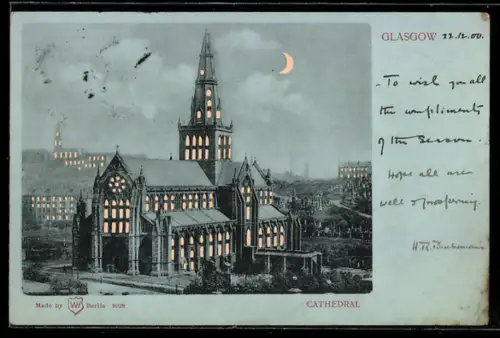 GLASGOW 22.12.00.
- To wish you all
the compliments
of the Season.
Hope all are
well & prospering.
CATHEDRAL
Made by WH Berlin